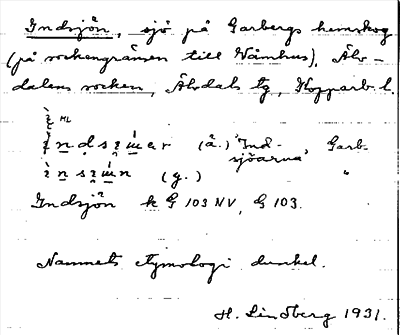 Indsjön, sjö på Garbergs hemskog
(på sockengränsen till Våmhus), Älv-
dalens socken, Älvdals tg, Kopparb. l.
ML
(å.) "Indsjöarna", Garb-
(g.) "
Indsjön k G 103 NV, G 103.
Namnets etymologi dunkel.
H. Lindberg 1931.